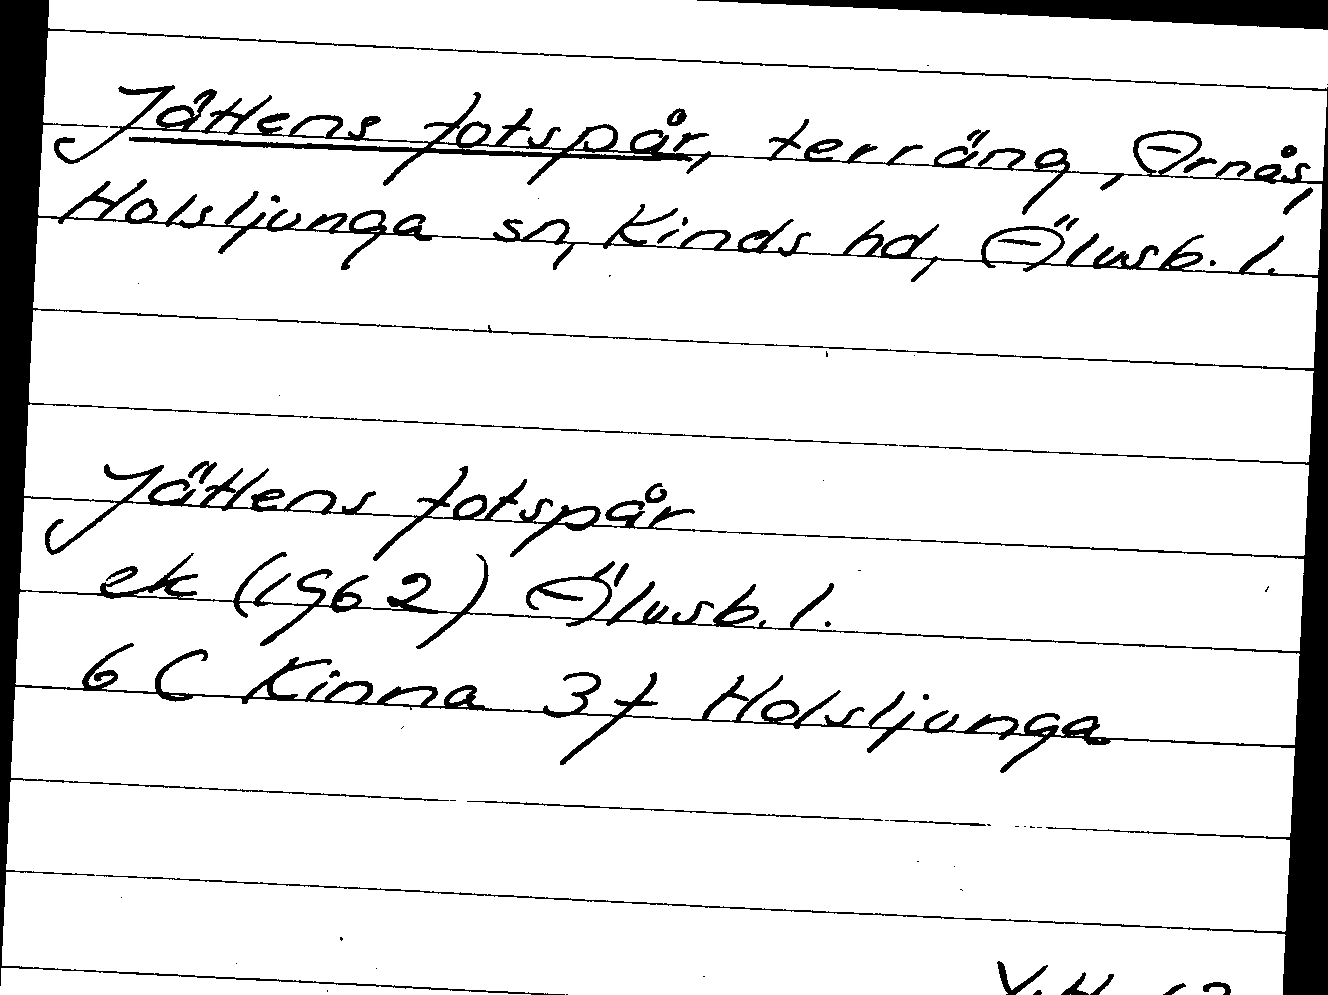 Jättens fotspår, terräng, Arnås,
Holsljunga sn, Kinds hd, Älvsb. l.
Jättens fotspår
ek (1962) Älvsb. l.
6 C Kinna 3f Holsljunga